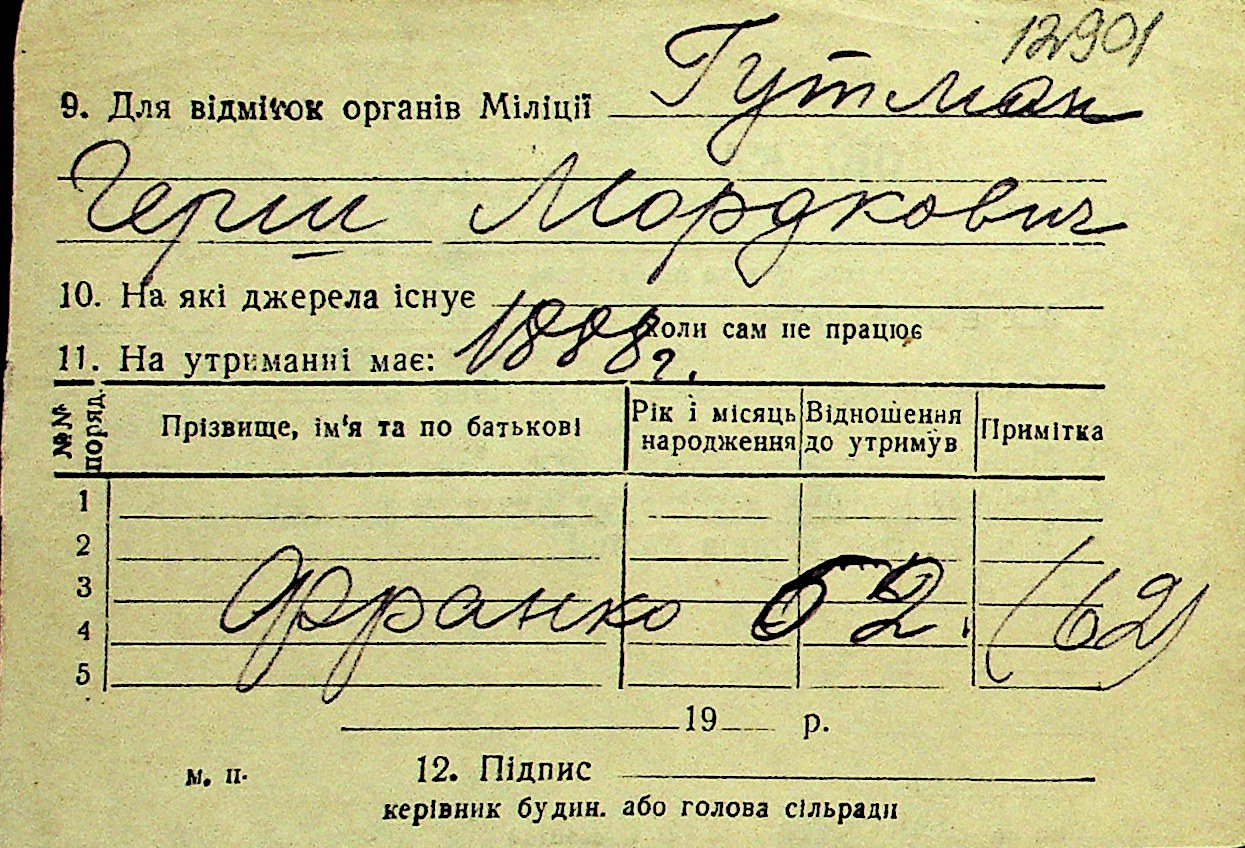 12901
9. Для відміток органів Міліції Гутман
Герш Мордкович
10. На які джерела існує
коли сам не працює
11. На утриманні має: 1888 г.
№№ поряд. Прізвище, ім'я та по батькові Рік і місяць народження Відношення до утримув Примітка
1
2
3 Франко 62. (62)
4
5
19 р.
м. п. 12. Підпис
керівник будин. або голова сільради